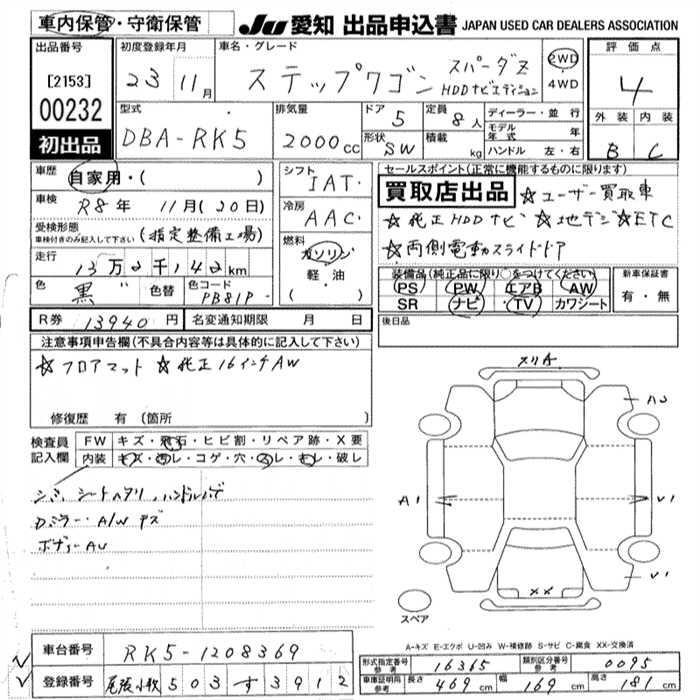 車内保管・守衛保管
JU 愛知 出品申込書 JAPAN USED CAR DEALERS ASSOCIATION
出品番号
[2153]
00232
初出品
初度登録年月
23 11月
車名・グレード
ステップワゴン スパーダZ
HDDナビエディション
2WD
4WD
評価点
4
外装 内装
B C
型式
DBA-RK5
排気量
2000cc
ドア 5
形状 SW
定員 8人
積載 kg
ディーラー・並行
モデル年式 年
ハンドル 左・右
車歴
自家用・( )
車検
R8年 11月(20日)
受検形態
車検付きのみ記入して下さい (指定整備工場)
走行
13万2千142km
色 黒 色替
色コード PB81P-
シフト
IAT.
冷房
AAC.
燃料
ガソリン
軽・油
( )
セールスポイント(正常に機能するものに限ります)
買取店出品 ☆ユーザー買取車
☆純正HDDナビ ☆地デジ ☆ETC
☆両側電動スライドドア
装備品(純正品に限り○をつけてください)
PS PW エアB AW
SR ナビ TV カワシート
新車保証書
有・無
R券 13940円 名変通知期限 月 日
後日品
注意事項申告欄(不具合内容等は具体的に記入して下さい)
☆フロアマット ☆純正16インチAW
修復歴 有(箇所
検査員記入欄
FW キズ・飛石・ヒビ割・リペア跡・X要
内装 キズ・汚レ・コゲ・穴・スレ・キレ・破レ
シミ、シートヘタリ、ハンドル
Dミラー・A/Wキズ
ボディーAU
メリA
A2
A1
V1
V1
XX
スペア
A-キズ E-エクボ U-凹み W-補修跡 S-サビ C-腐食 XX-交換済
車台番号 RK5-1208369
登録番号 尾張小牧 503 す 3912
形式指定番号 参考 16365 類別区分番号 参考 0095
車庫証明用 参考 長さ 469cm 幅 169cm 高さ 181cm